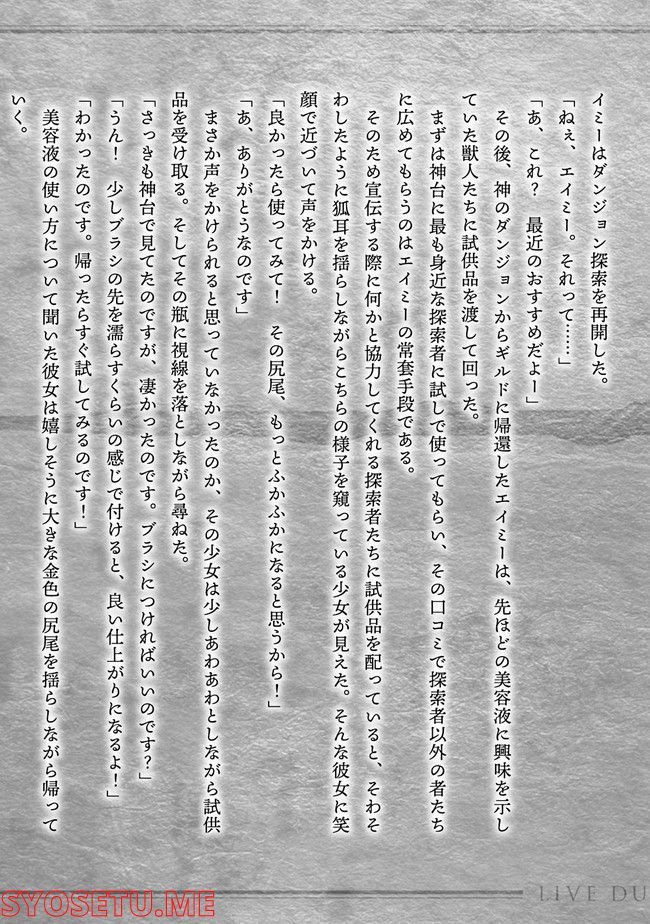 イミーはダンジョン探索を再開した。
「ねぇ、エイミー。それって……」
「あ、これ？　最近のおすすめだよー」
　その後、神のダンジョンからギルドに帰還したエイミーは、先ほどの美容液に興味を示し
ていた獣人たちに試供品を渡して回った。
　まずは神台に最も身近な探索者に試しで使ってもらい、その口コミで探索者以外の者たち
に広めてもらうのはエイミーの常套手段である。
　そのため宣伝する際に何かと協力してくれる探索者たちに試供品を配っていると、そわそ
わしたように狐耳を揺らしながらこちらの様子を窺っている少女が見えた。そんな彼女に笑
顔で近づいて声をかける。
「良かったら使ってみて！　その尻尾、もっとふかふかになると思うから！」
「あ、ありがとうなのです」
　まさか声をかけられると思っていなかったのか、その少女は少しあわあわとしながら試供
品を受け取る。そしてその瓶に視線を落としながら尋ねた。
「さっきも神台で見てたのですが、凄かったのです。ブラシにつければいいのです？」
「うん！　少しブラシの先を濡らすくらいの感じで付けると、良い仕上がりになるよ！」
「わかったのです。帰ったらすぐ試してみるのです！」
　美容液の使い方について聞いた彼女は嬉しそうに大きな金色の尻尾を揺らしながら帰って
いく。
LIVE DU
SYOSETU.ME